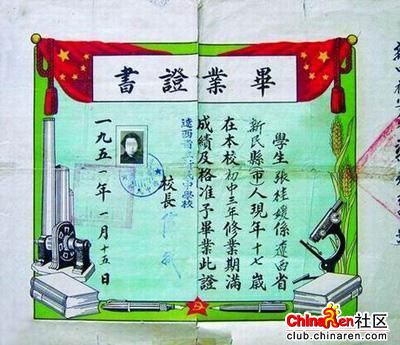 畢業證書
學生張桂媛係遼西省
新民縣市人現年十七歲
在本校初中三年修業期滿
成績及格准予畢業此證
遼西省 中學校
校長
一九五一年一月十五日
ChinaRen社区
club.chinaren.com